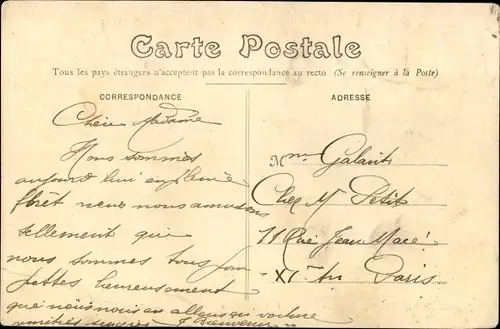 Carte Postale
Tous les pays étrangers n'acceptent pas la correspondance au recto (Se renseigner à la Poste)
CORRESPONDANCE
Chère Madame
Nous sommes
aujourd'hui en pleine
forêt nous nous amusons
tellement que
nous sommes tous
heureusement
que nous nous en allons en voiture
amitiés
ADRESSE
Mme Galant
Chez Mr Petit
11 Rue Jean Macé
XIe Arr Paris